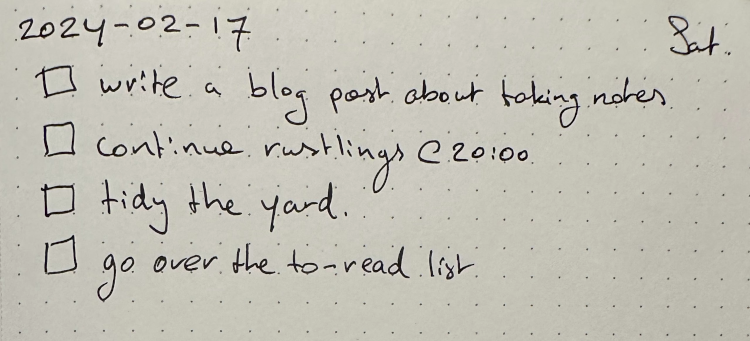 2024-02-17 Sat.
□ write a blog post about taking notes
□ continue rustlings @ 20:00
□ tidy the yard.
□ go over the to-read list